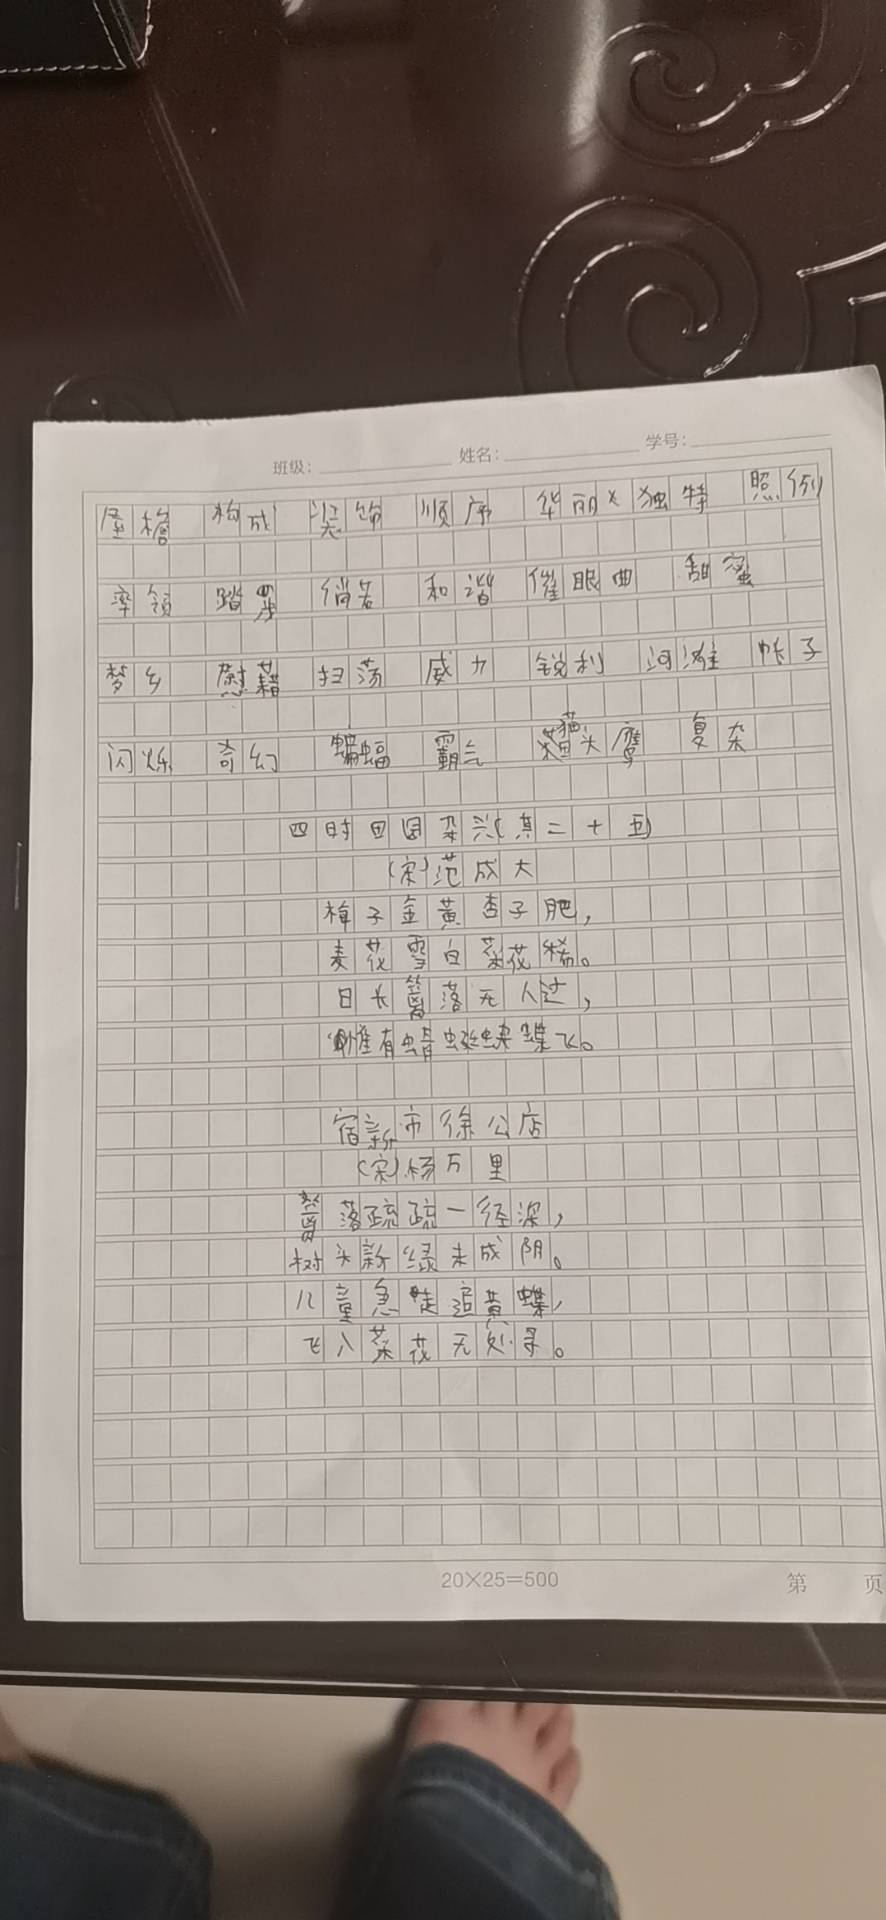 班级： 姓名： 学号：
屋檐 构成 装饰 顺序 华丽 独特 照例
率领 踏 倘若 和谐 催眠曲 甜蜜
梦乡 慰藉 扫荡 威力 锐利 河滩 帐子
闪烁 奇幻 蝙蝠 霸气 猫头鹰 复杂
四时田园杂兴(其二十五)
(宋)范成大
梅子金黄杏子肥，
麦花雪白菜花稀。
日长篱落无人过，
唯有蜻蜓蛱蝶飞。
宿新市徐公店
(宋)杨万里
篱落疏疏一径深，
树头新绿未成阴。
儿童急走追黄蝶，
飞入菜花无处寻。
20×25=500
第 页